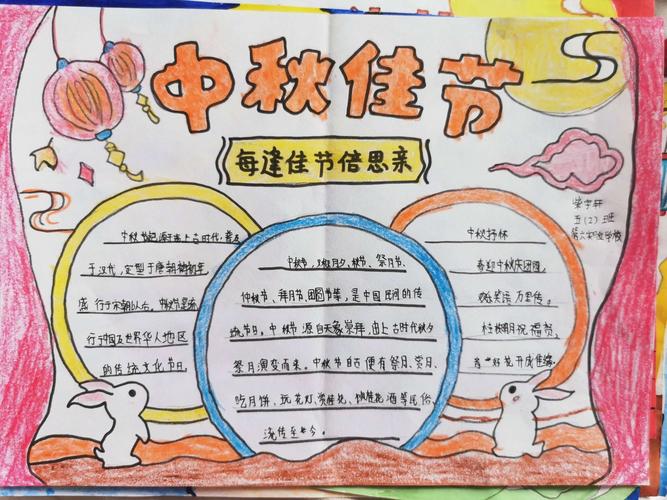 中秋佳节
每逢佳节倍思亲
五(2)班
中秋节起源于上古时代，普及
于汉代，定型于唐朝初年，
盛行于宋朝以后。中秋节是流
行于中国及世界华人地区
的传统文化节日。
中秋节，又称月夕、秋节、祭月节、
仲秋节、拜月节、团圆节等，是中国民间的传
统节日。中秋节源自天象崇拜，由上古时代秋夕
祭月演变而来。中秋节自古便有祭月、赏月、
吃月饼、玩花灯、赏桂花、饮桂花酒等民俗，
流传至今。
中秋抒怀
喜迎中秋庆团圆，
欢歌笑语万里传。
祝福
好花开成佳缘